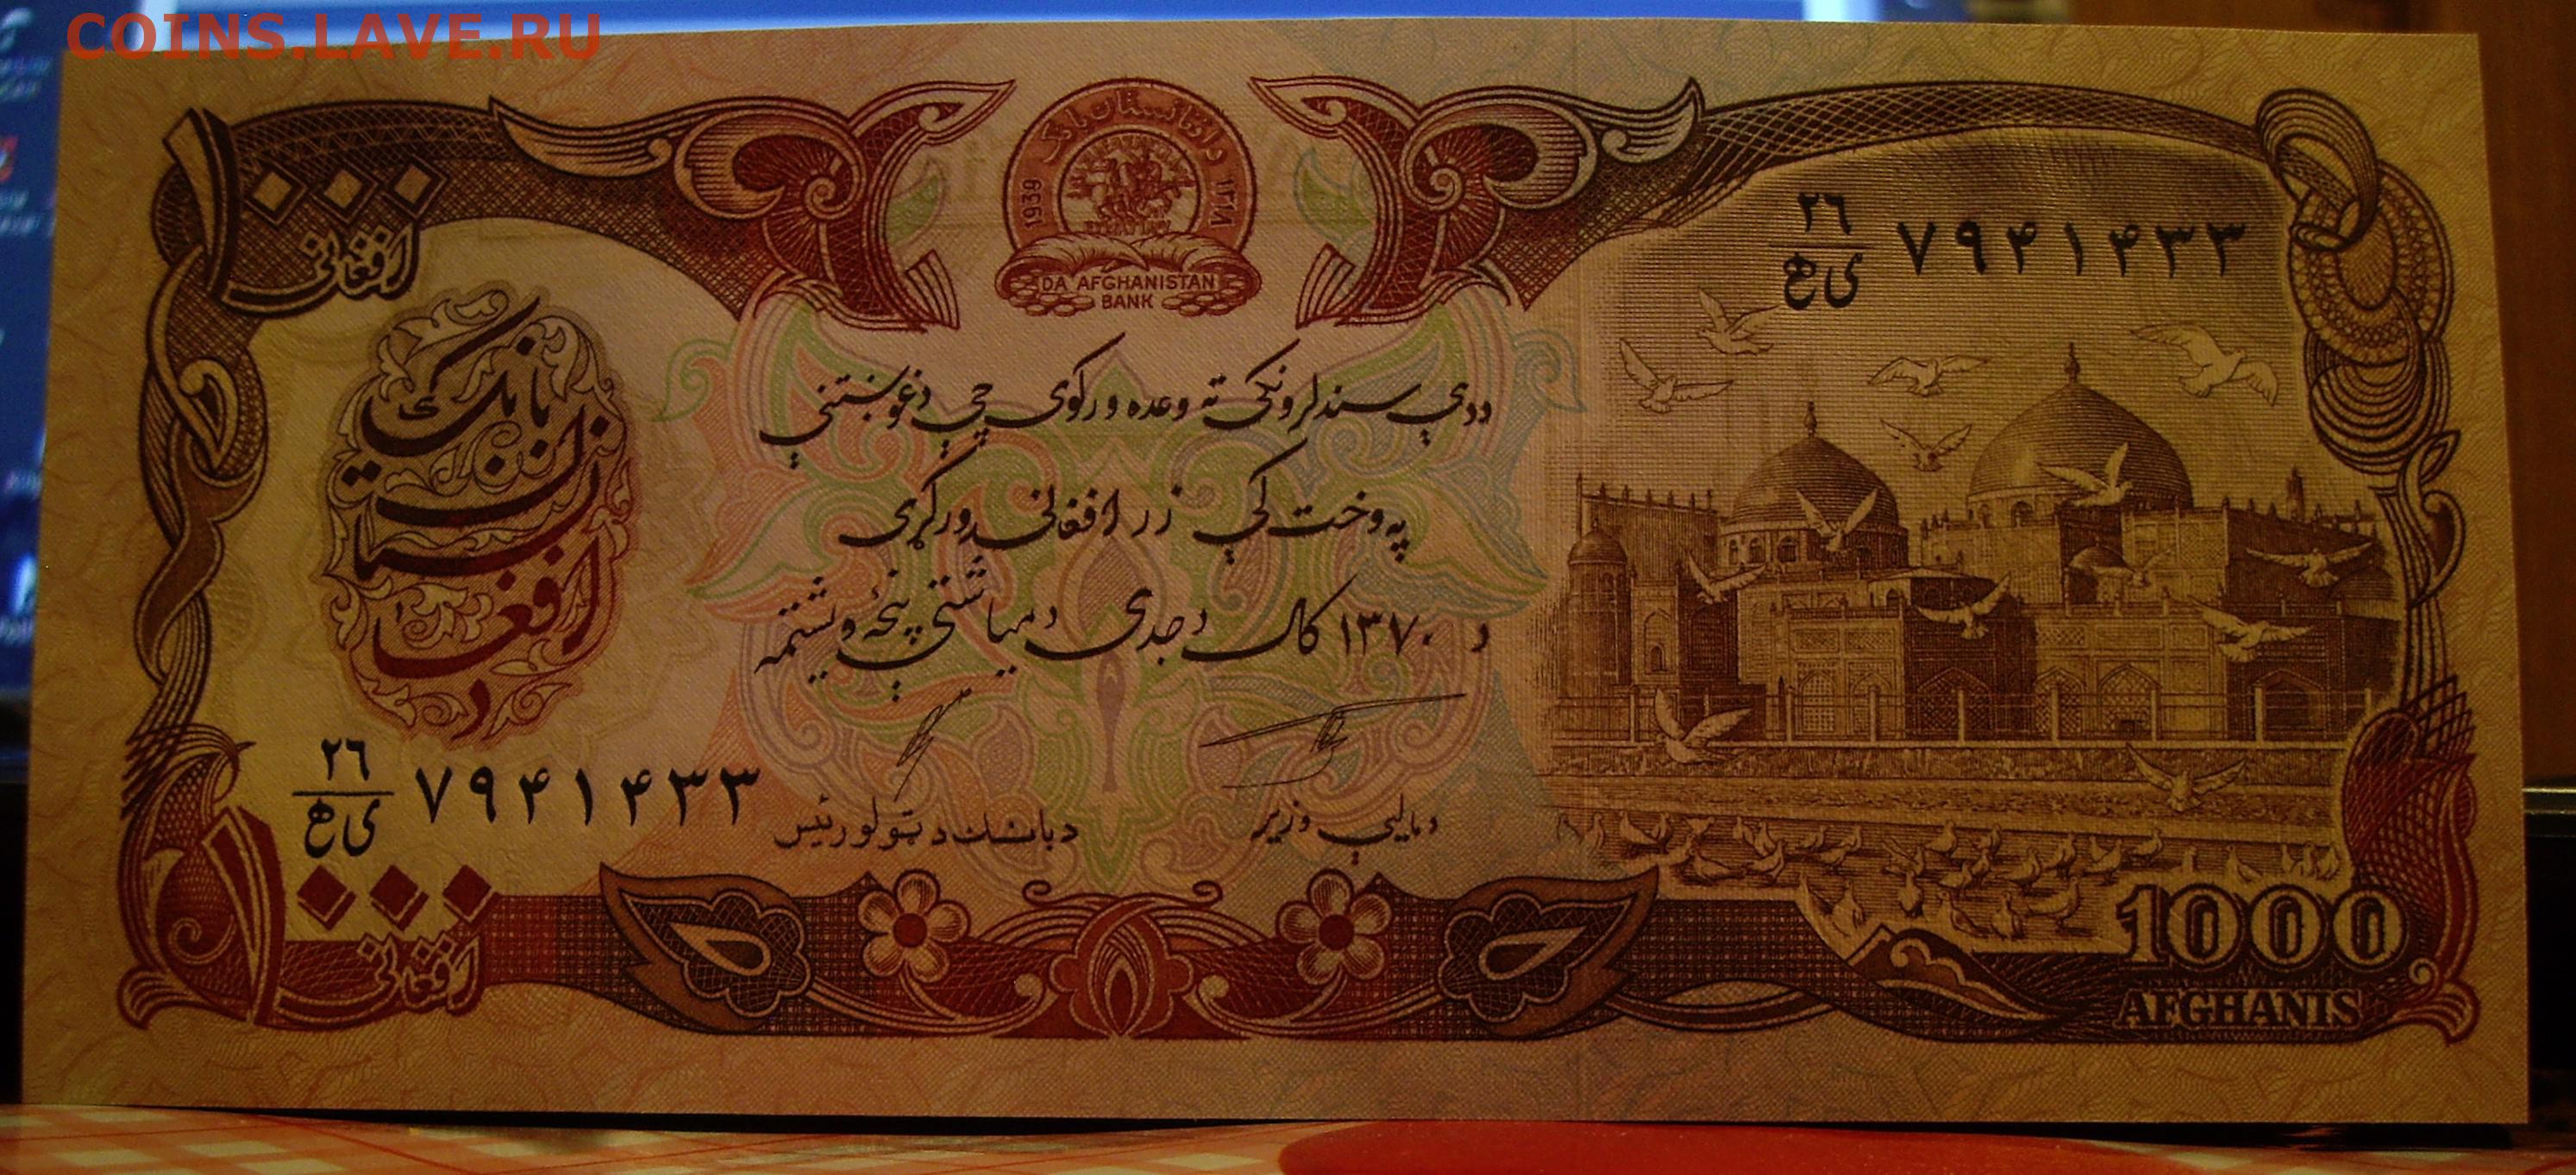 COINS.LAVE.RU
۱۰۰۰
افغانۍ
د افغانستان بانک
1939
۱۳۱۸
DA AFGHANISTAN
BANK
۲۶
ی ھ
۷۹۴۱۴۳۳
بانک
افغانستان
د
ددې سند لرونکي ته وعده ورکوی چې دغوښتنې
په وخت کې زر افغانۍ ورکړی
د ۱۳۷۰ کال د جدی د میاشتې پنځه ویشتمه
۲۶
ی ھ
۷۹۴۱۴۳۳
د بانک د ټولو رئیس
د مالیې وزیر
۱۰۰۰
افغانۍ
1000
AFGHANIS